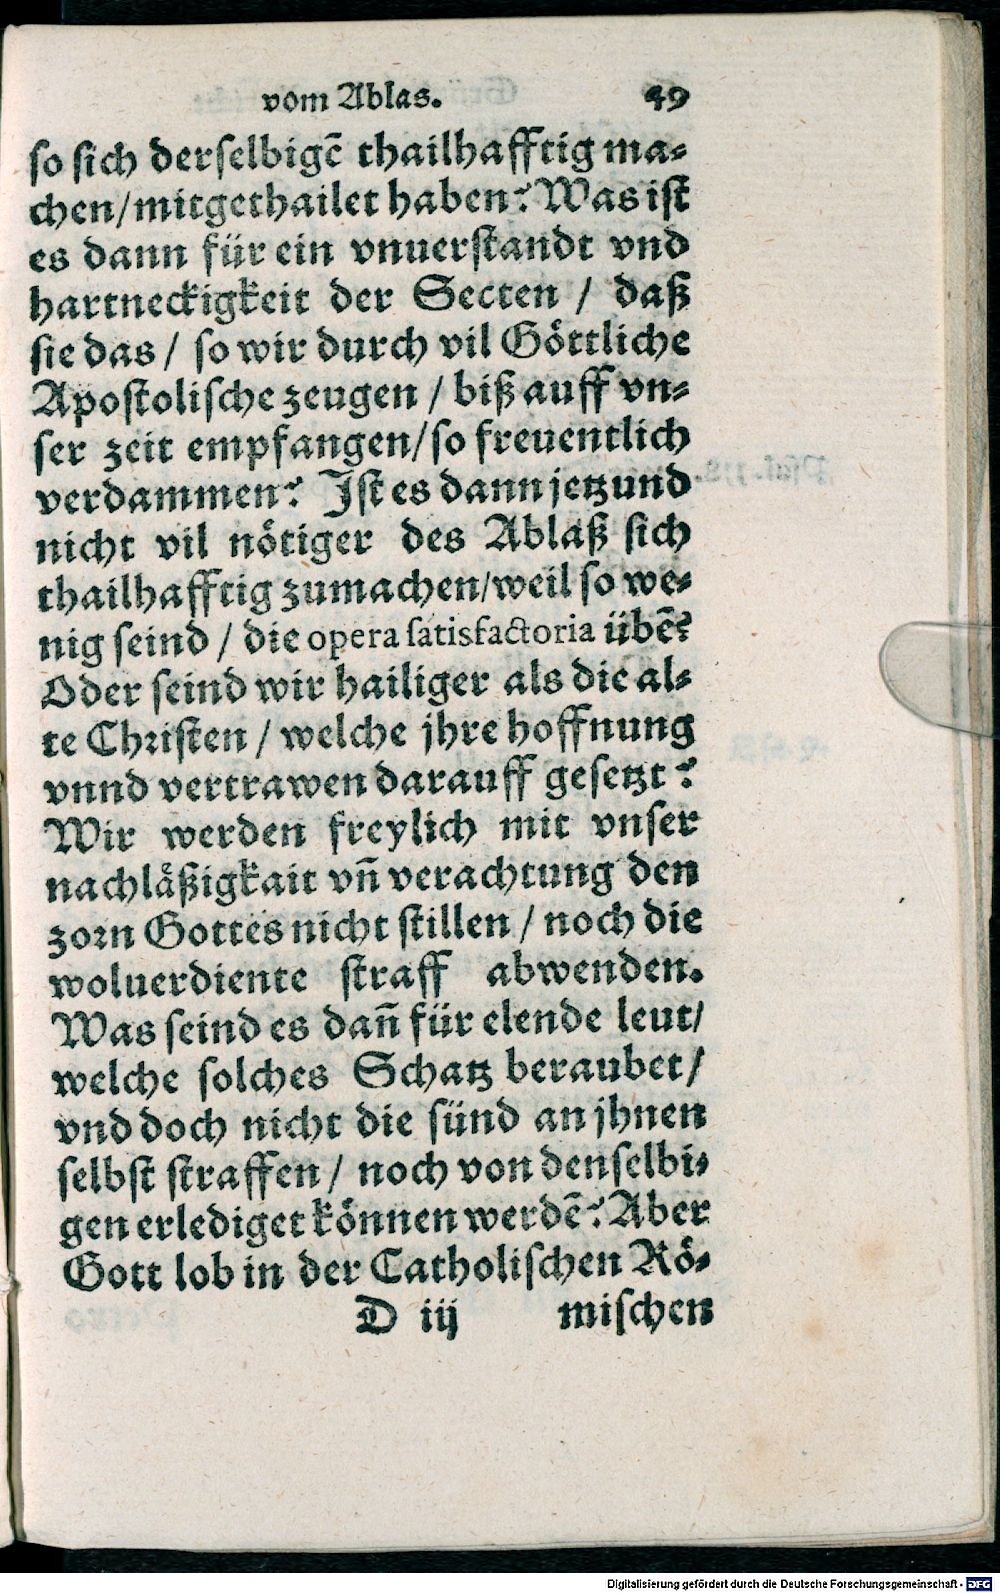 vom Ablas. 49
so sich derselbigē thailhafftig ma-
chen/mitgethailet haben? Was ist
es dann für ein vnuerstandt vnd
hartneckigkeit der Secten / daß
sie das / so wir durch vil Göttliche
Apostolische zeugen / biß auff vn-
ser zeit empfangen/so freuentlich
verdammen? Ist es dann jetzund
nicht vil nötiger des Ablaß sich
thailhafftig zumachen/weil so we-
nig seind / die opera satisfactoria übē?
Oder seind wir hailiger als die al-
te Christen / welche jhre hoffnung
vnnd vertrawen darauff gesetzt?
Wir werden freylich mit vnser
nachläßigkait vn̄ verachtung den
zorn Gottes nicht stillen / noch die
woluerdiente straff abwenden.
Was seind es dan̄ für elende leut/
welche solches Schatz beraubet/
vnd doch nicht die sünd an jhnen
selbst straffen / noch von denselbi-
gen erlediget können werdē? Aber
Gott lob in der Catholischen Rö-
D iij mischen
Digitalisierung gefördert durch die Deutsche Forschungsgemeinschaft - DFG